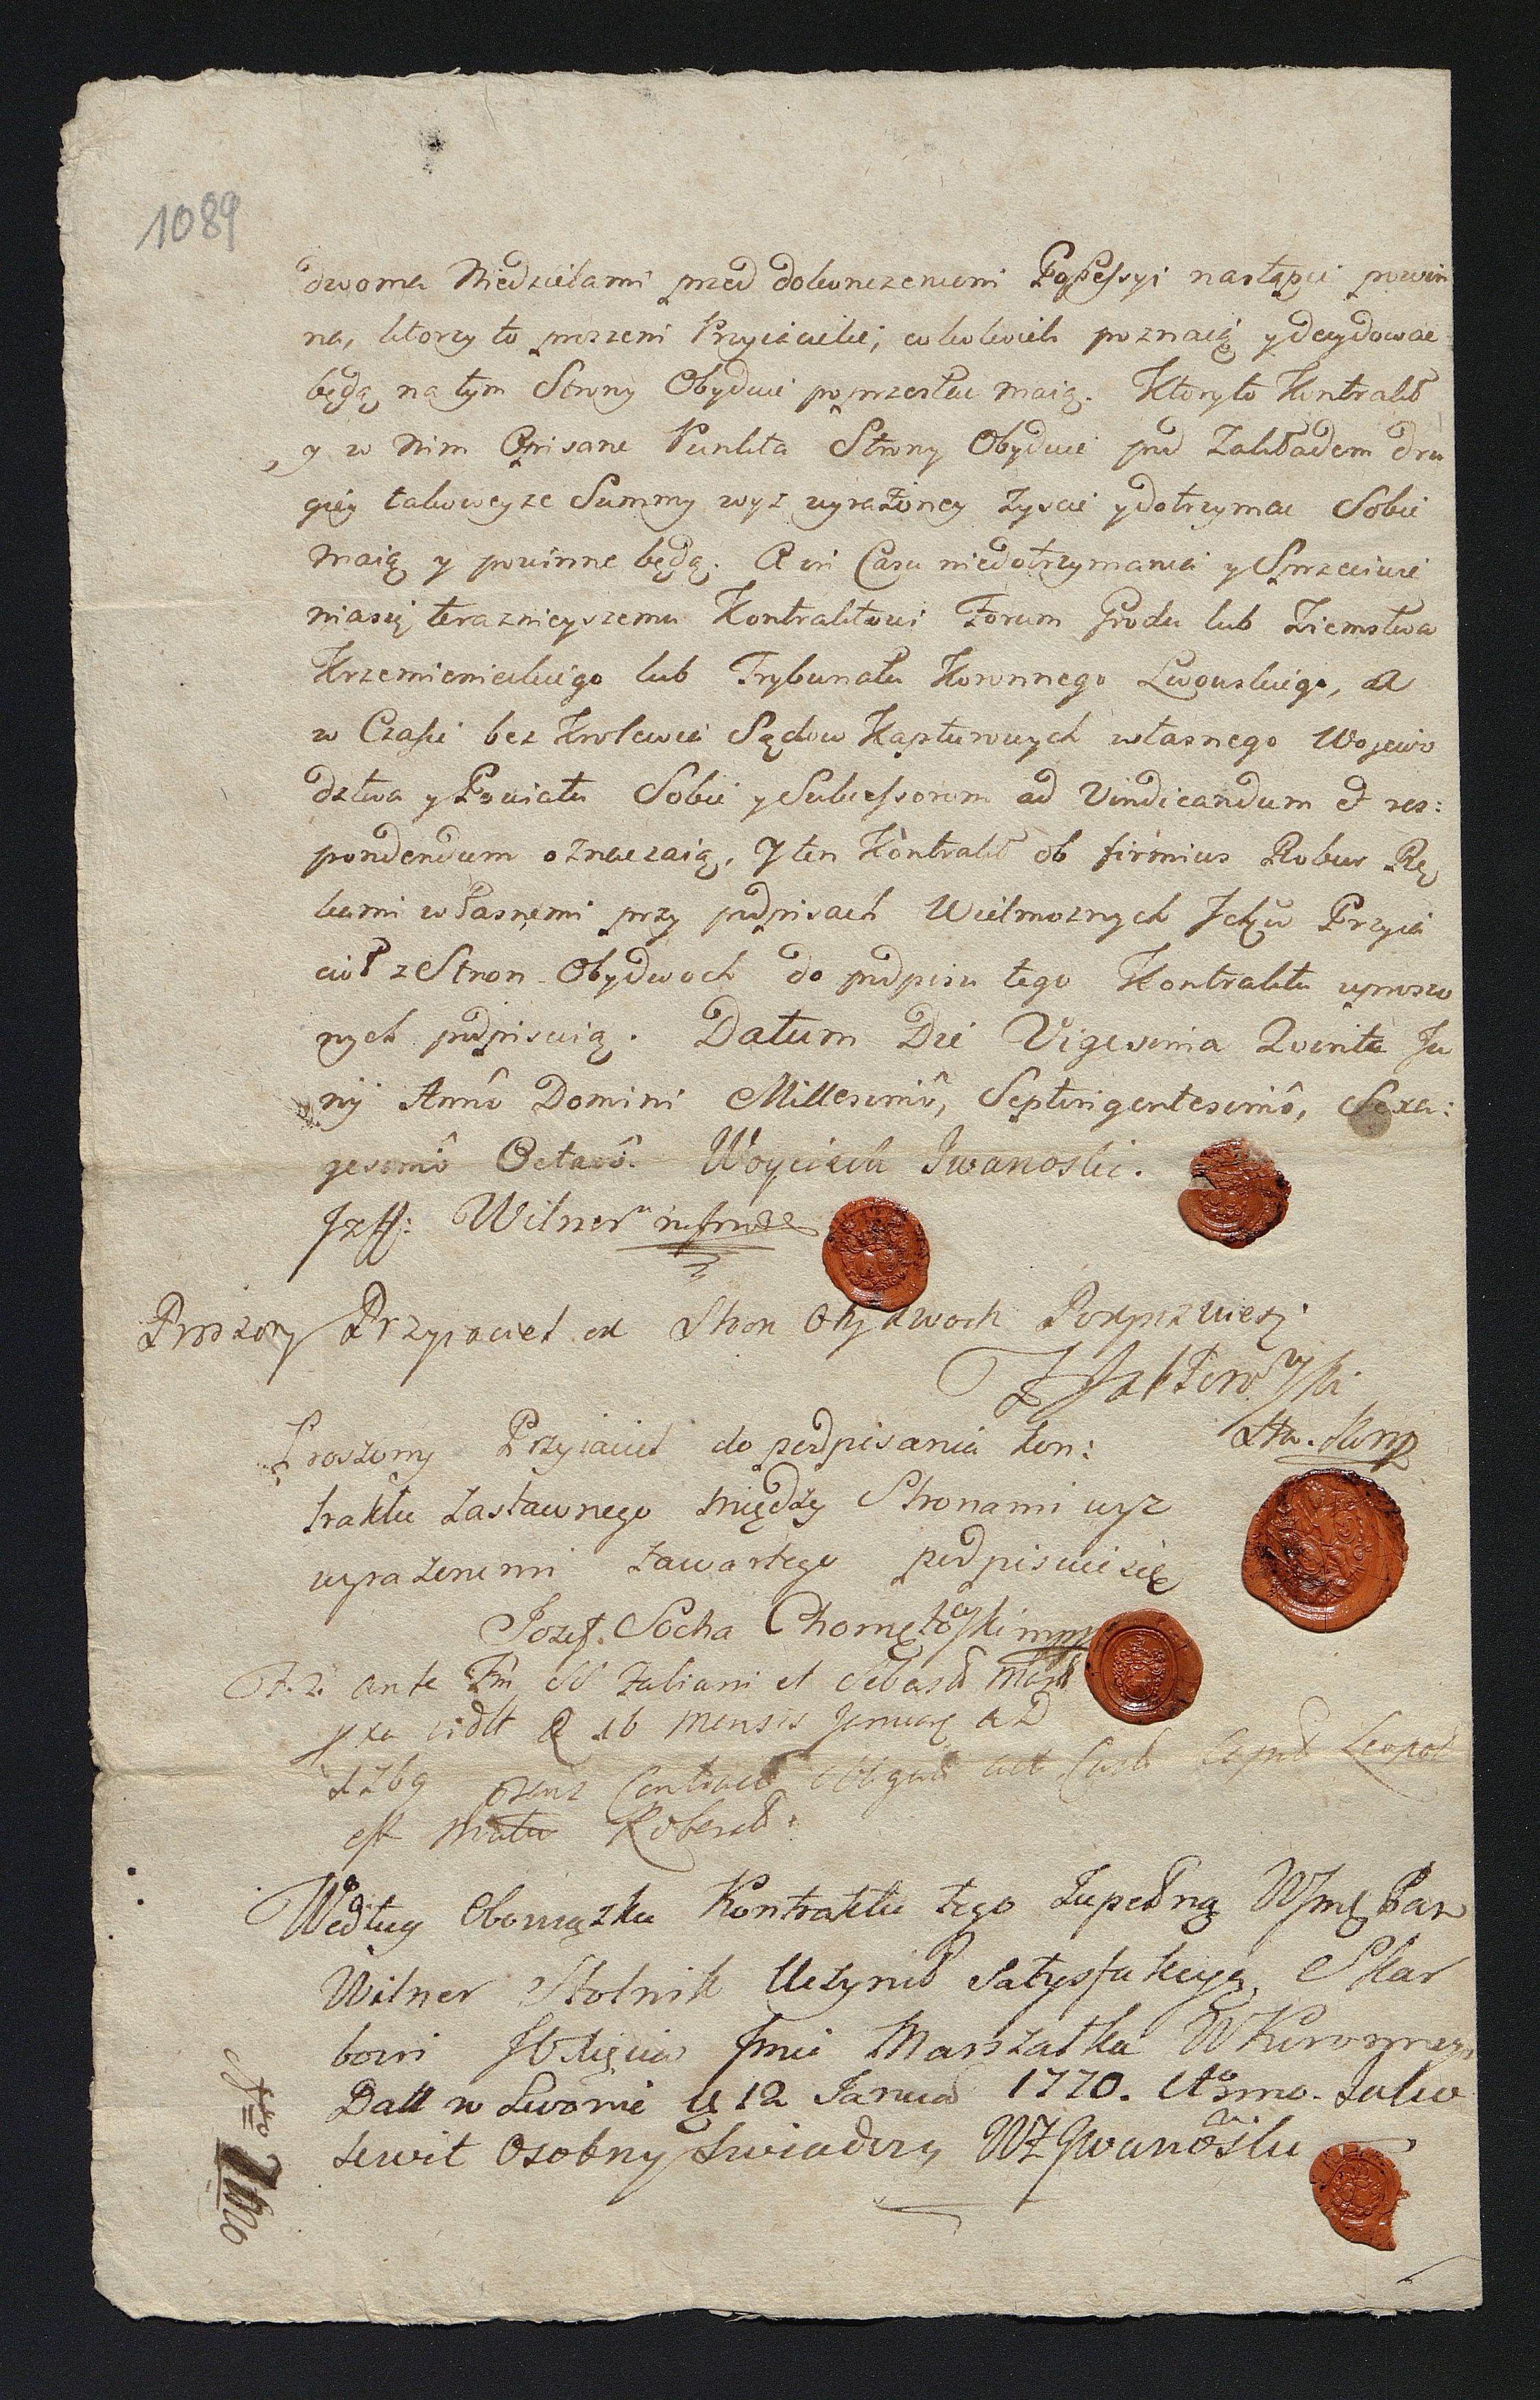 1089
dwoma Niedzielami przed dokonczeniem Possessyi nastąpić powin
na, ktorzy to proszeni Przyiaciele, cokolwiek poznaią y decydowac
będą, na tym Strony Obydwie poprzestac maią. Ktoryto Kontrakt
y w Nim Opisane Punkta Strony Obydwie pod Zakładem dru
giey takoweyze Summy wyz wyrażoney Zyscić y dotrzymac Sobie
maią y powinne będą. A in Casu niedotrzymania y Sprzeciwie
niasię teraznieyszemu Kontraktowi Forum Grodu lub Ziemstwa
Krzemienieckiego lub Trybunału Koronnego Lwowskiego, a
w Czasie bez Krolewia Sądow Kapturowych własnego Wojewo
dztwa y Powiatu Sobie y Sukcessorom ad Vindicandum et res:
pondendum oznaczaią. Y ten Kontrakt ob firmius Robur Rę
kami własnemi przy podpisach Wielmoznych Ichmw Przyia
cioł z Stron Obydwoch do podpisu tego Kontraktu uproszo
nych podpisuią. Datum Die Vigesima Quinta Ju
nij Anno Domini Millesimo, Septingentesimo, Sexa:
gesimo Octavo. Woyciech Iwanoski.
Jzff: Wilner
Proszony Przyiaciel od Stron Obydwoch Podpisuiesię
Proszony Przyiaciel do podpisania kon:
traktu zastawnego między Stronami wyz
wyrazonemi zawartego podpisuie się
Jozef Socha Chomętowski mpp
ante et Sebast
16 Mensis Januarij AD
1769 Contract
est
Według Obowiązku Kontraktu tego Zupełną WJmc Pan
Wilner Stolnik Uczynił Satysfakcyą Skar
bowi JO Xięcia Jmci Marszałka WKoronnego
Datt w Lwowie d 12 Janua 1770. Ao. Jako
kewit Osobny Swiadczy WZ Iwanoski